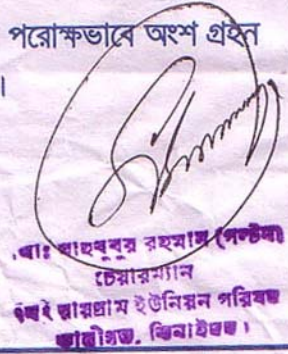 পরোক্ষভাবে অংশ গ্রহন
।
মোঃ মাহবুবুর রহমান (পল্টন)
চেয়ারম্যান
রায়গ্রাম ইউনিয়ন পরিষদ
কালীগঞ্জ, ঝিনাইদহ।